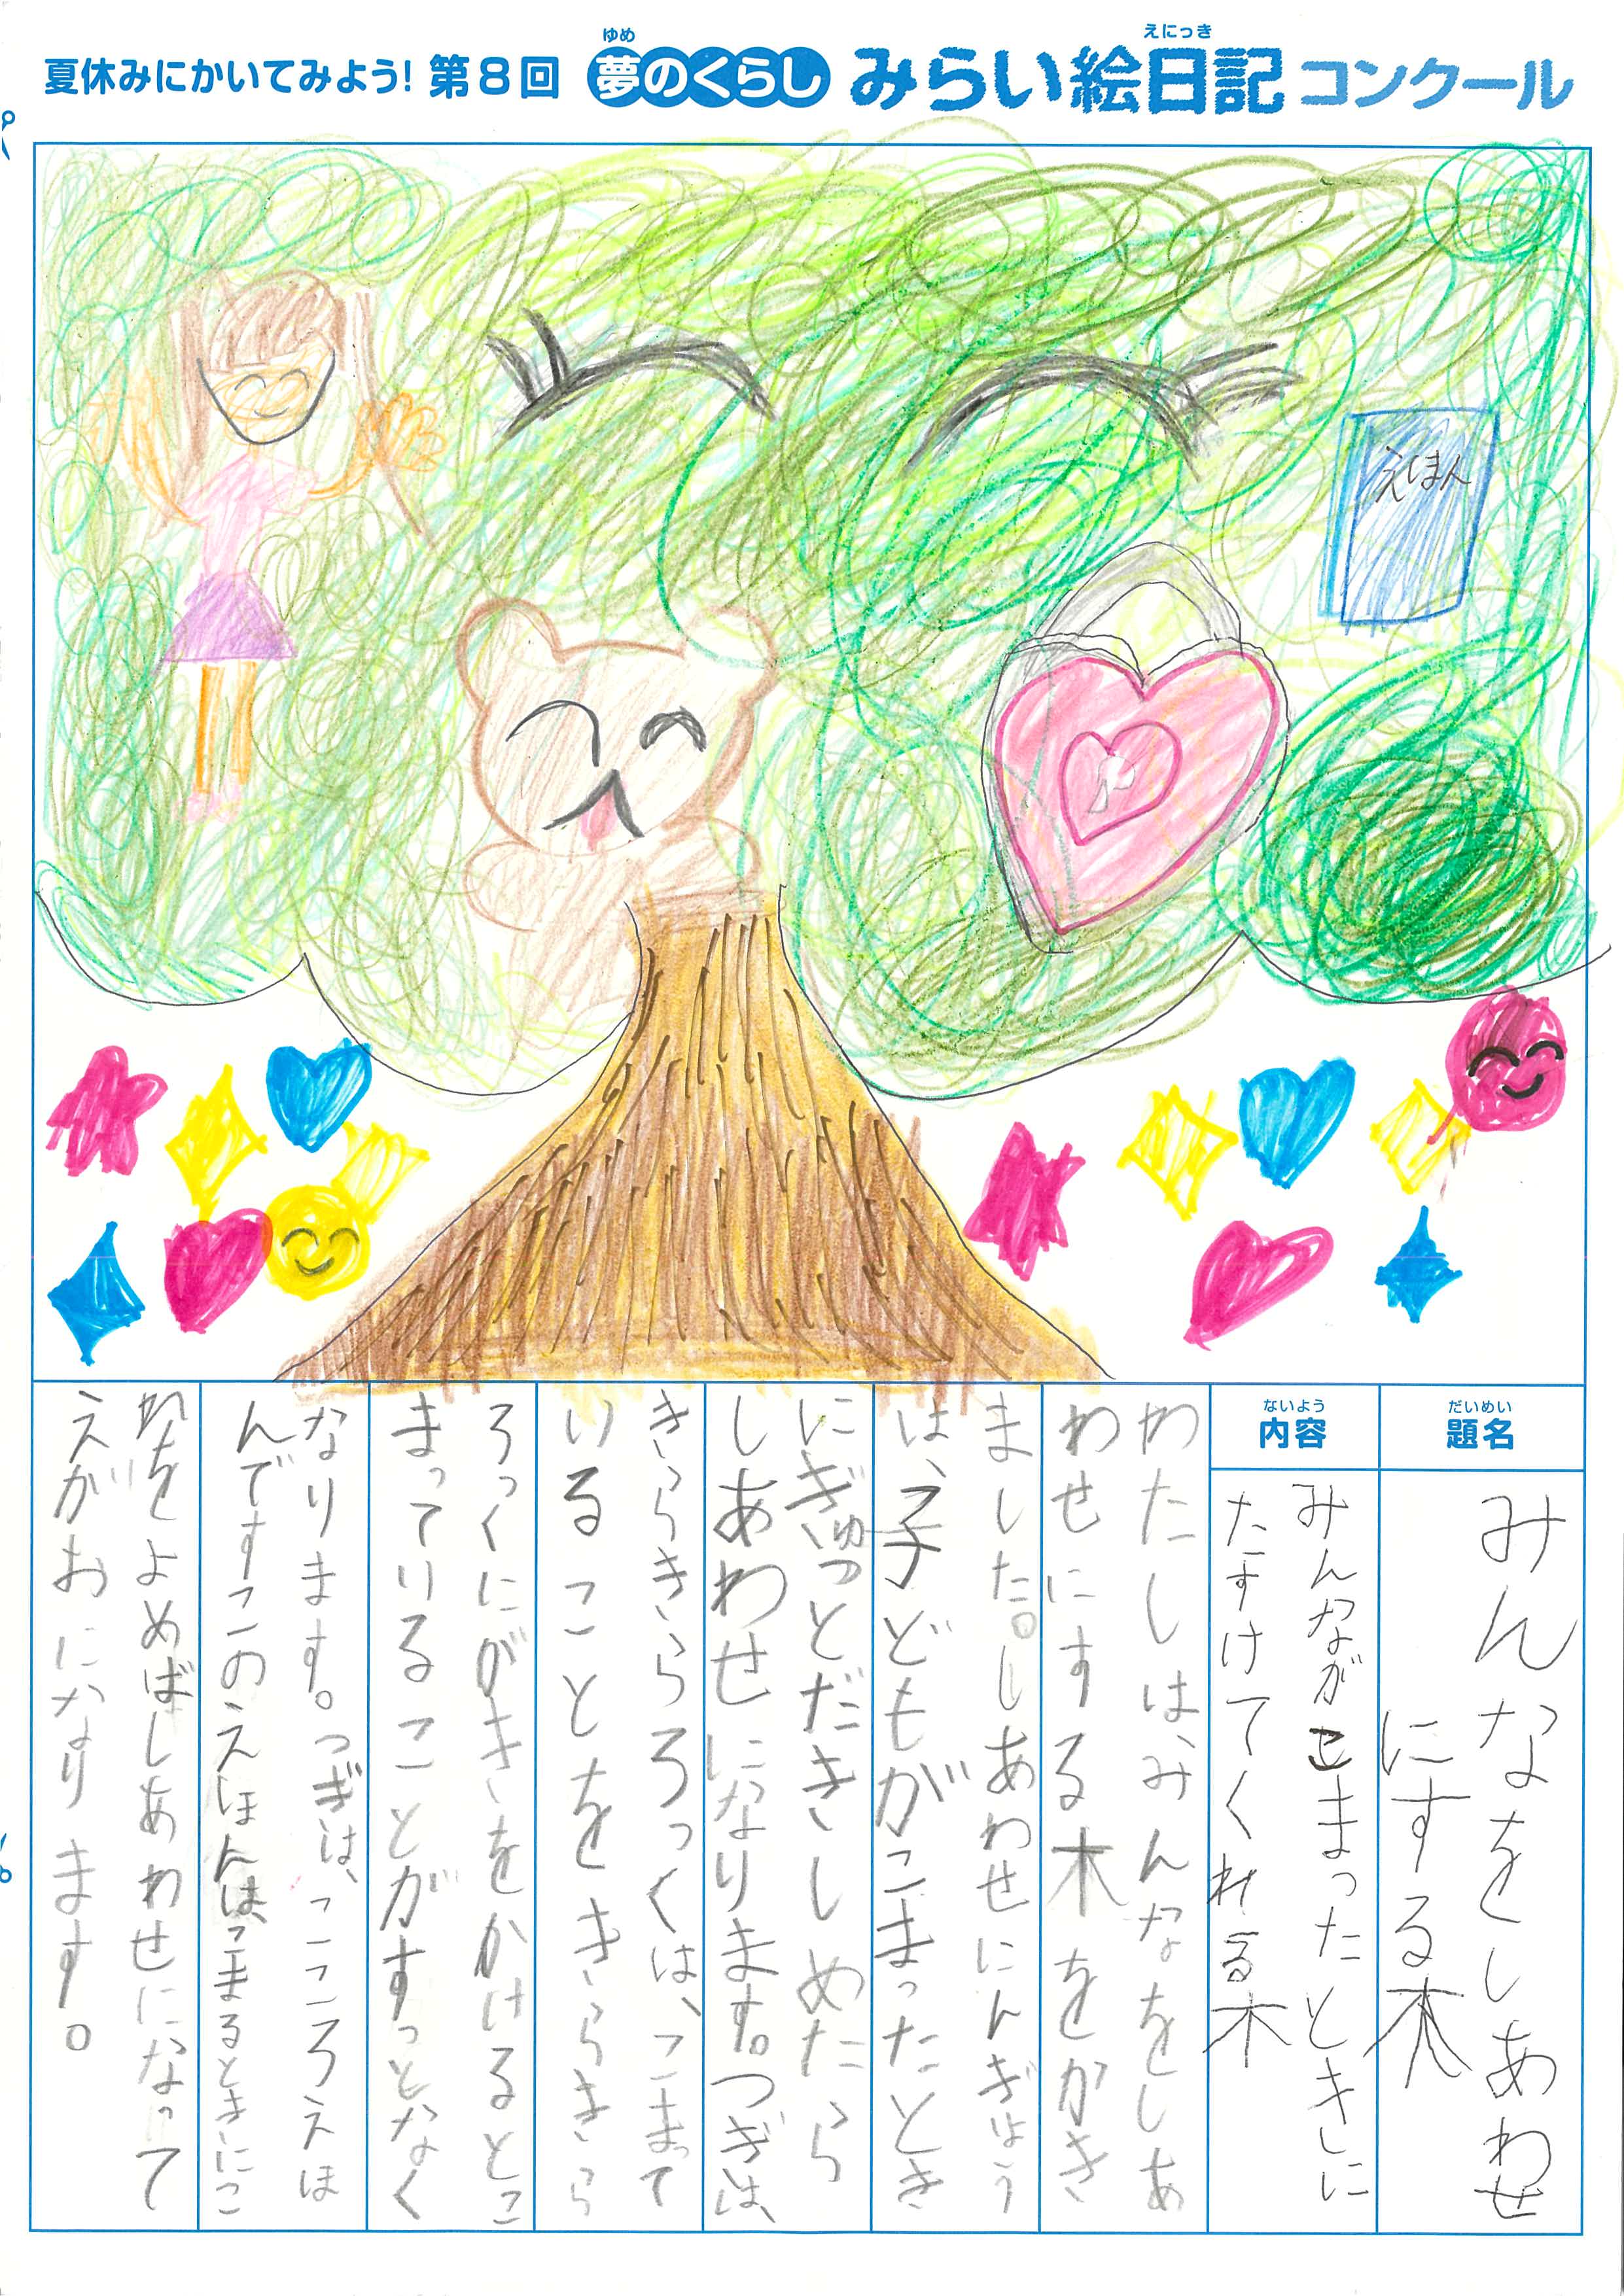 夏休みにかいてみよう! 第8回 夢のくらし みらい絵日記 コンクール
ゆめ
えにっき
えほん
だいめい
題名
みんなをしあわせ
にする木
ないよう
内容
みんながこまったときに
たすけてくれる木
わたしは、みんなをしあ
わせにする木をかき
ました。しあわせにんぎょう
は、子どもがこまったとき
にぎゅっとだきしめたら
しあわせになります。つぎは、
きらきらろっくは、こまって
いることをきらきら
ろっくにがきをかけるとこ
まっていることがすっとなく
なります。つぎは、こころえほ
んですこのえほんは、こまるときにこ
れをよめばしあわせになって
えがおになります。